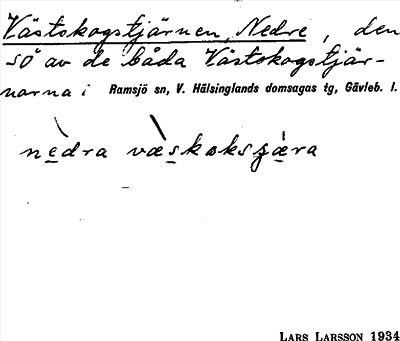 Västskogstjärnen, Nedre, den
SÖ av de båda Västskogstjär-
narna i Ramsjö sn, V. Hälsinglands domsagas tg, Gävleb. l.
nèdra væ̀skoksʒæ̀ra
LARS LARSSON 1934